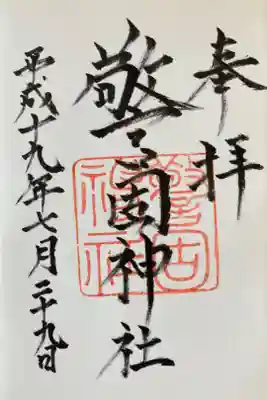 奉拝
警固神社
平成十九年七月二十九日
警固
神社